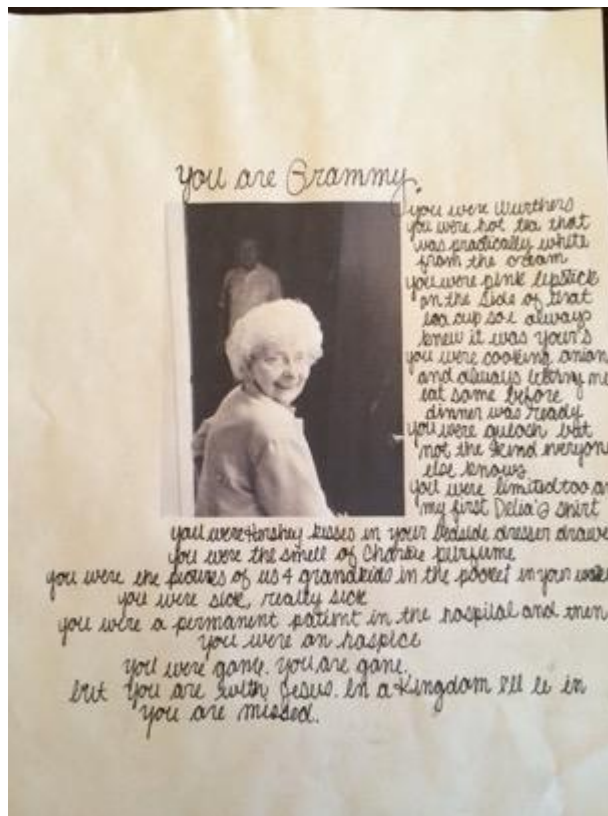 you are Grammy.
you were Wurthers
you were hot tea that
was practically white
from the cream
you were pink lipstick
on the side of that
tea cup so I always
knew it was your's
you were cooking onion
and always letting me
eat some before
dinner was ready
you were gulosh but
not the kind everyone
else knows
you were limited too an
my first Delia's shirt
you were Hershey kisses in your bedside dresser drawe
you were the smell of Charlie perfume
you were the pictures of us 4 grandkids in the pocket in your
you were sick, really sick
you were a permanent patient in the hospital and then
you were on hospice
you were gone. you are gone.
but you are with Jesus. In a Kingdom I'll be in
you are missed.